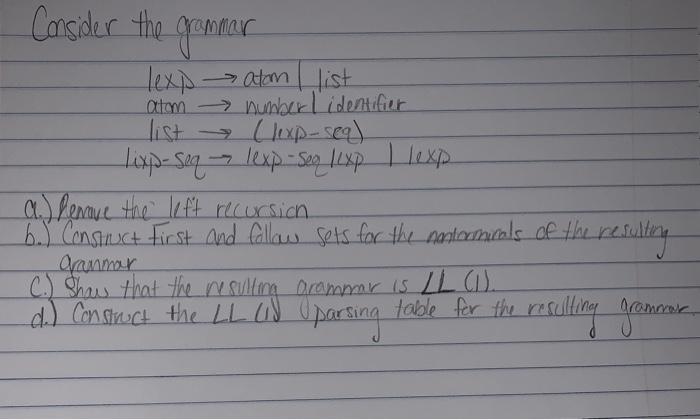 Consider the grammar
lexp → atom | list
atom → number | identifier
list → (lexp-seq)
lixp-seq → lexp-seq lexp | lexp
a.) Remove the left recursion
b.) Construct First and follow sets for the nonterminals of the resulting
grammar
C.) Show that the resulting grammar is LL (1).
d.) Construct the LL (1) parsing table for the resulting grammar.